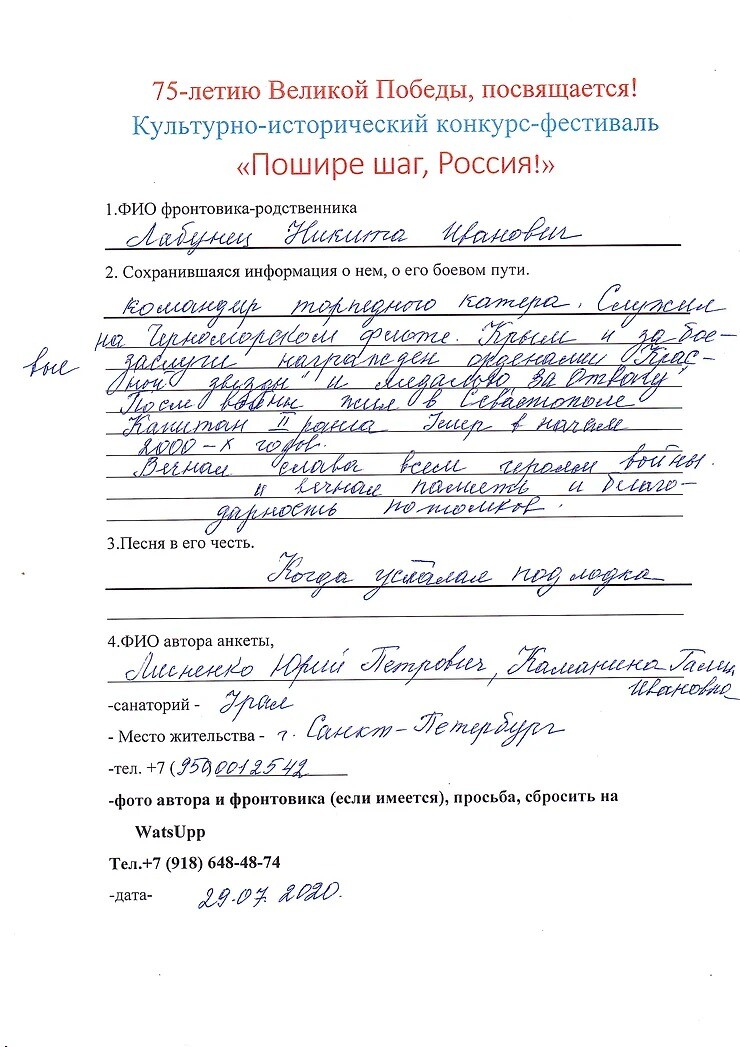 75-летию Великой Победы, посвящается!
Культурно-исторический конкурс-фестиваль
«Пошире шаг, Россия!»
1.ФИО фронтовика-родственника
Лабунец Никита Иванович
2. Сохранившаяся информация о нем, о его боевом пути.
командир торпедного катера. Служил
на Черноморском флоте. Крым и за бое-
вые заслуги награжден орденами "Крас-
ной звезды" и медалью "За Отвагу"
После войны жил в Севастополе
Капитан II ранга Умер в начале
2000-х годов.
Вечная слава всем героям войны.
и вечная память и благо-
дарность потомков.
3.Песня в его честь.
Когда усталая подлодка
4.ФИО автора анкеты,
Лисненко Юрий Петрович, Каманина Галин
Ивановна
-санаторий - Урал
- Место жительства - г. Санкт-Петербург
-тел. +7 (959)0012542
-фото автора и фронтовика (если имеется), просьба, сбросить на
WatsUpp
Тел.+7 (918) 648-48-74
-дата- 29.07.2020.